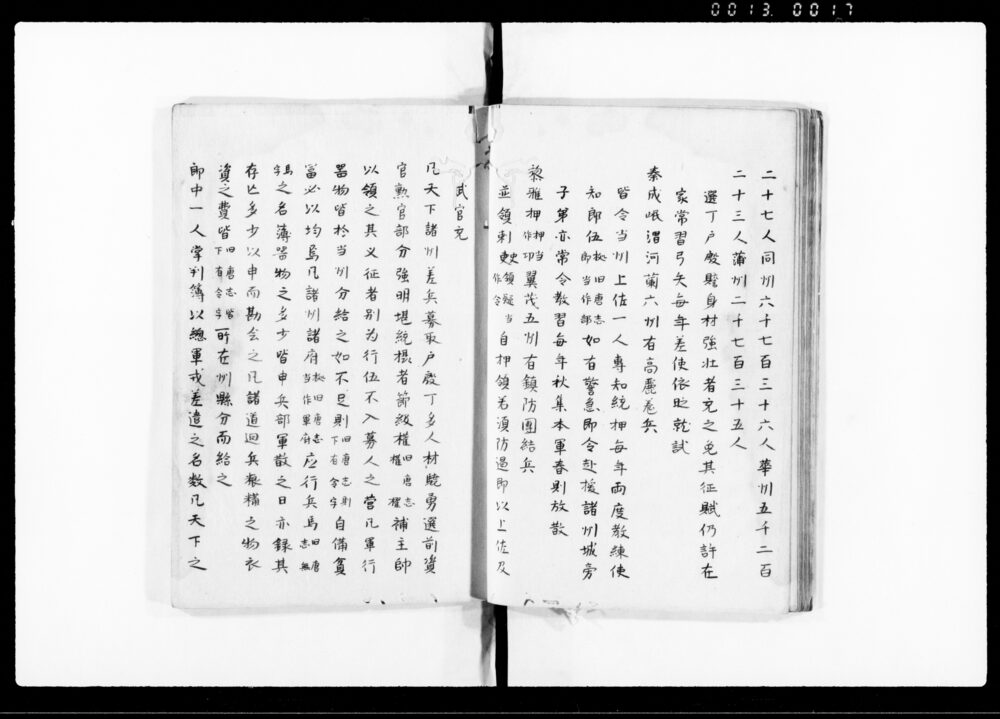 0013 0017
二十七人同州六千七百三十六人華州五千二百
二十三人蒲州二千七百三十五人
選丁戶殷贍身材強壯者充之免其征賦仍許在
家常習弓矢每年差使依時就試
秦成岷渭河蘭六州有高麗羌兵
皆令當州上佐一人專知統押每年兩度教練使
知部伍按舊唐志即當作部如有警急即令赴援諸州城旁
子弟亦常令教習每年秋集本軍春則放散
黎雅押押当作邛翼茂五州有鎮防團結兵
並領刺史史領疑当作令自押領若須防遏即以上佐及
武官充
凡天下諸州差兵募取戶殷丁多人材驍勇選前資
官勲官部分強明堪統攝者節級權旧唐志權權補主帥
以領之其义征者別为行伍不入募人之营凡軍行
器物皆於当州分給之如不足則旧唐志則下有令字自備貧
富必以均焉凡諸州諸府按旧唐志当作軍府应行兵馬旧唐志無
馬字之名簿器物之多少皆申兵部軍散之日亦録其
存亡多少以申而勘会之凡諸道迴兵粮糒之物衣
資之費皆旧唐志皆下有令字所在州縣分而給之
郎中一人掌判簿以總軍戎差遣之名数凡天下之